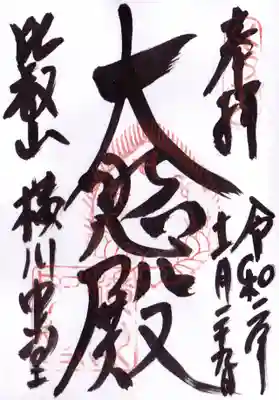 奉拝
令和二年
十一月二十九日
大悲殿
比叡山
横川中堂